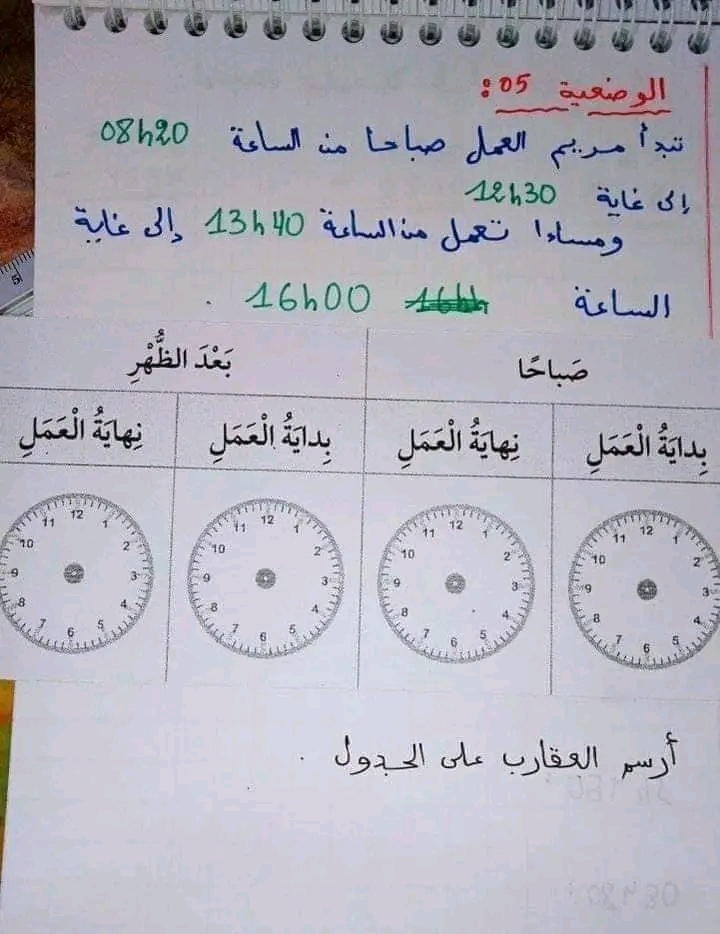 الوضعية 05:
تبدأ مريم العمل صباحا من الساعة 08h20
إلى غاية 12h30
ومساءا تعمل من الساعة 13h40 إلى غاية
الساعة 16h00 .
صَباحًا
بَعْدَ الظُّهْرِ
بِدايَةُ الْعَمَلِ
نِهايَةُ الْعَمَلِ
بِدايَةُ الْعَمَلِ
نِهايَةُ الْعَمَلِ
12 1 2 3 4 5 6 7 8 9 10 11
12 1 2 3 4 5 6 7 8 9 10 11
12 1 2 3 4 5 6 7 8 9 10 11
12 1 2 3 4 5 6 7 8 9 10 11
أرسم العقارب على الجدول .